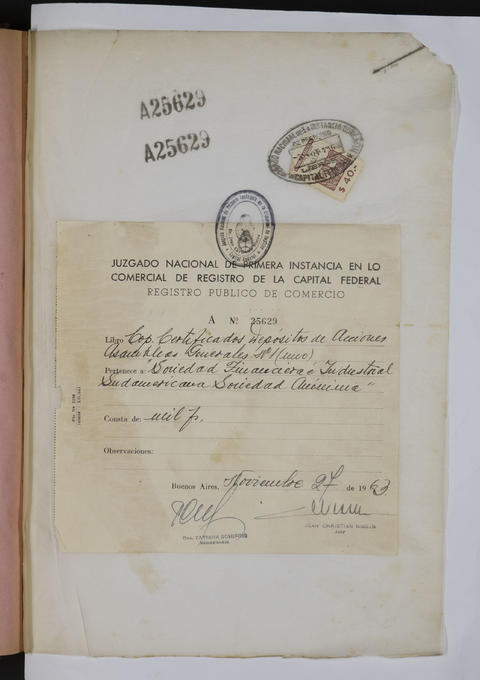 A25629
A25629
$ 40.-
JUZGADO NACIONAL DE PRIMERA INSTANCIA EN LO
COMERCIAL DE REGISTRO DE LA CAPITAL FEDERAL
REGISTRO PUBLICO DE COMERCIO
A Nº 25629
Libro Cop. Certificados depósitos de Acciones
Asambleas Generales Nº 1 (uno)
Pertenece a: "Sociedad Financiera é Industrial
Sudamericana Sociedad Anónima"
Consta de: mil fs.
Observaciones:
Buenos Aires, Noviembre 27 de 1963
Dra. TATIANA
JUAN CHRISTIAN
JUEZ